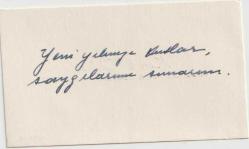 Yeni yılınızı kutlar,
saygılarımı sunarım.